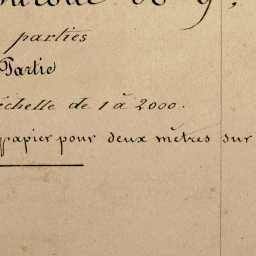 parties
Partie
échelle de 1 à 2000.
papier pour deux mètres sur